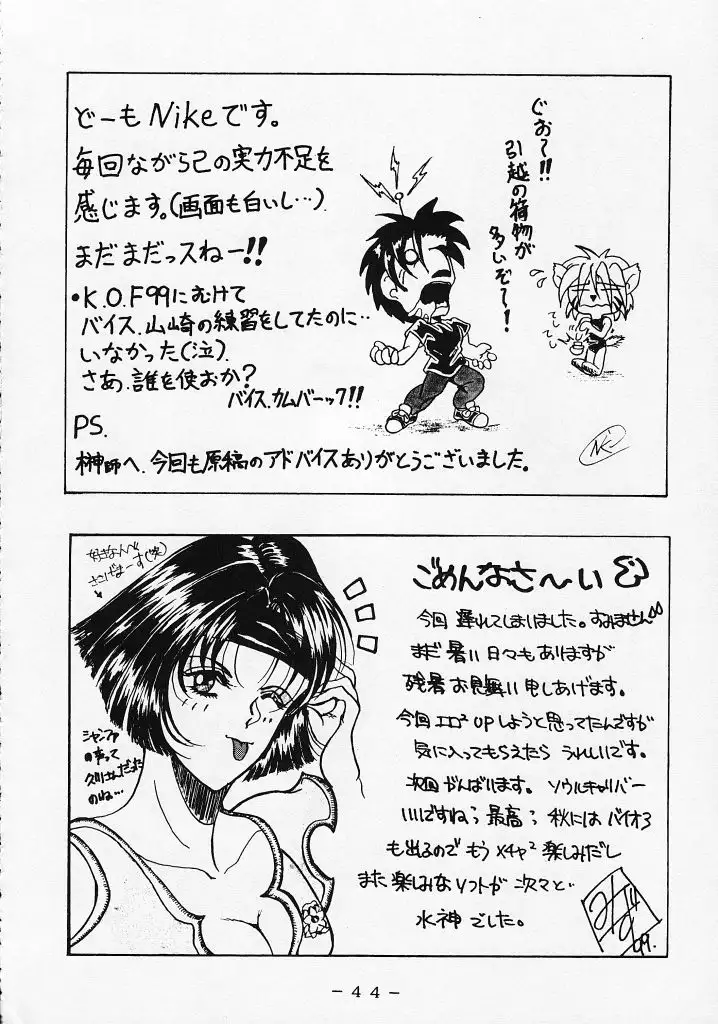 どーもNikeです。
毎回ながら己の実力不足を
感じます。(画面も白いし…).
まだまだっスねー!!
•K.O.F99にむけて
バイス.山崎の練習をしてたのに…
いなかった(泣).
さあ.誰を使おか?
バイス.カムバーック!!
PS.
榊師へ.今回も原稿のアドバイスありがとうございました。
ぐお〜!!
引越の荷物が
多いぞ〜!
てしてし
好きなんで
ささげまーす(笑)
シャンファ
の声って
久川さんだった
のね…
ごめんなさ〜い
今回 遅れてしまいました。すみません
まだ 暑い 日々も ありますが
残暑 お見舞い 申しあげます。
今回 エロ² UPしようと思ってたんですが
気に入ってもらえたら うれしいです。
次回 がんばります。 ソウルキャリバー
いいですねっ 最高っ 秋には バイオ3
も出るので もう メチャ² 楽しみだし
また 楽しみな ソフトが 次々と
水神 でした。
みず
99.
- 44 -